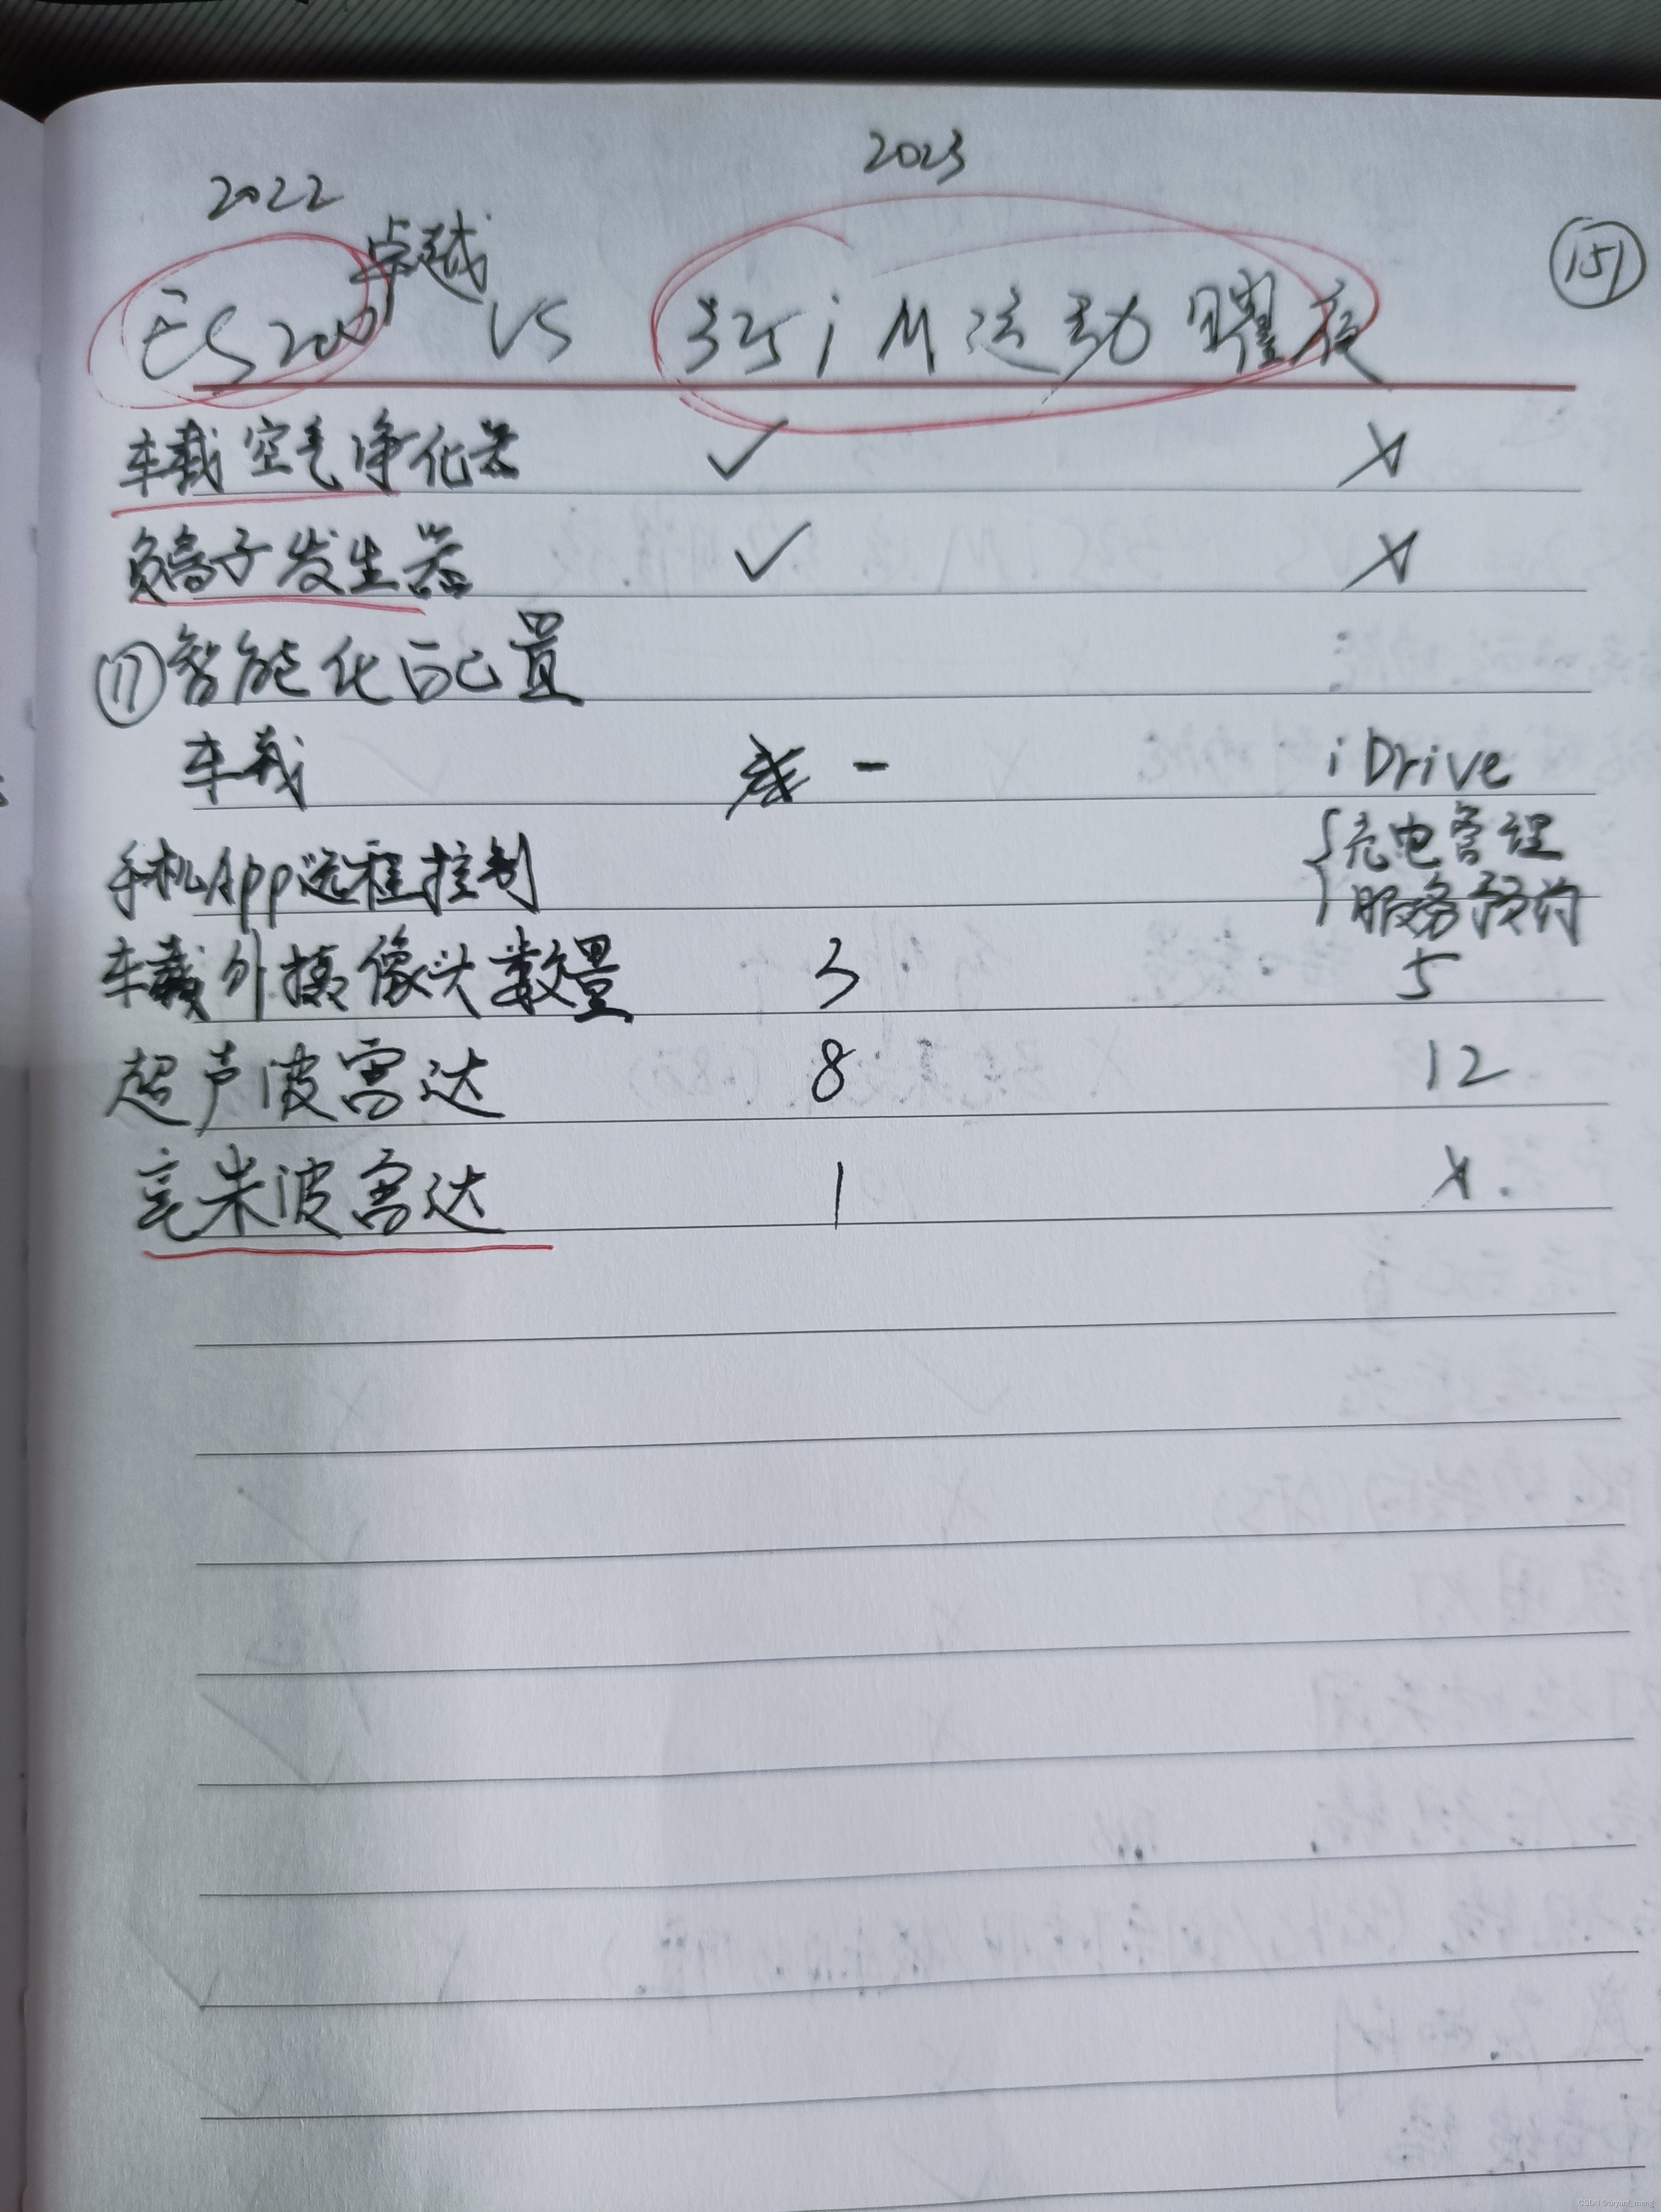 2022 2023
ES200 卓越 VS 325i M运动曜夜 151
车载空气净化器 ✓ ×
负离子发生器 ✓ ×
⑰智能化配置
车载 - iDrive
手机App远程控制 {充电管理
服务预约
车载外摄像头数量 3 5
超声波雷达 8 12
毫米波雷达 1 ×.
CSDN @bryant_meng